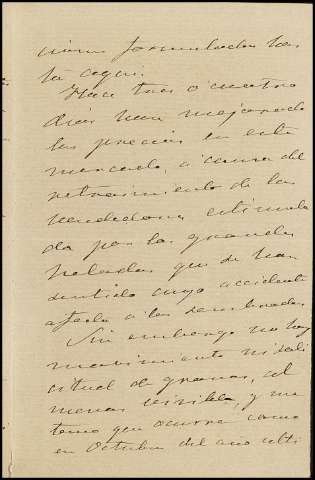 formuladas has
ta aqui.
Hace tres o cuatro
dias han mejorado
los precios en este
mercado, a causa del
retraimiento de los
vendedores estimula
do por las grandes
heladas que se han
sentido cuyo accidente
afecta a los sembrados.
Sin embargo no hay
movimiento ni
de granos, al
menos visible, y me
temo que ocurra como
en Octubre del año ulti